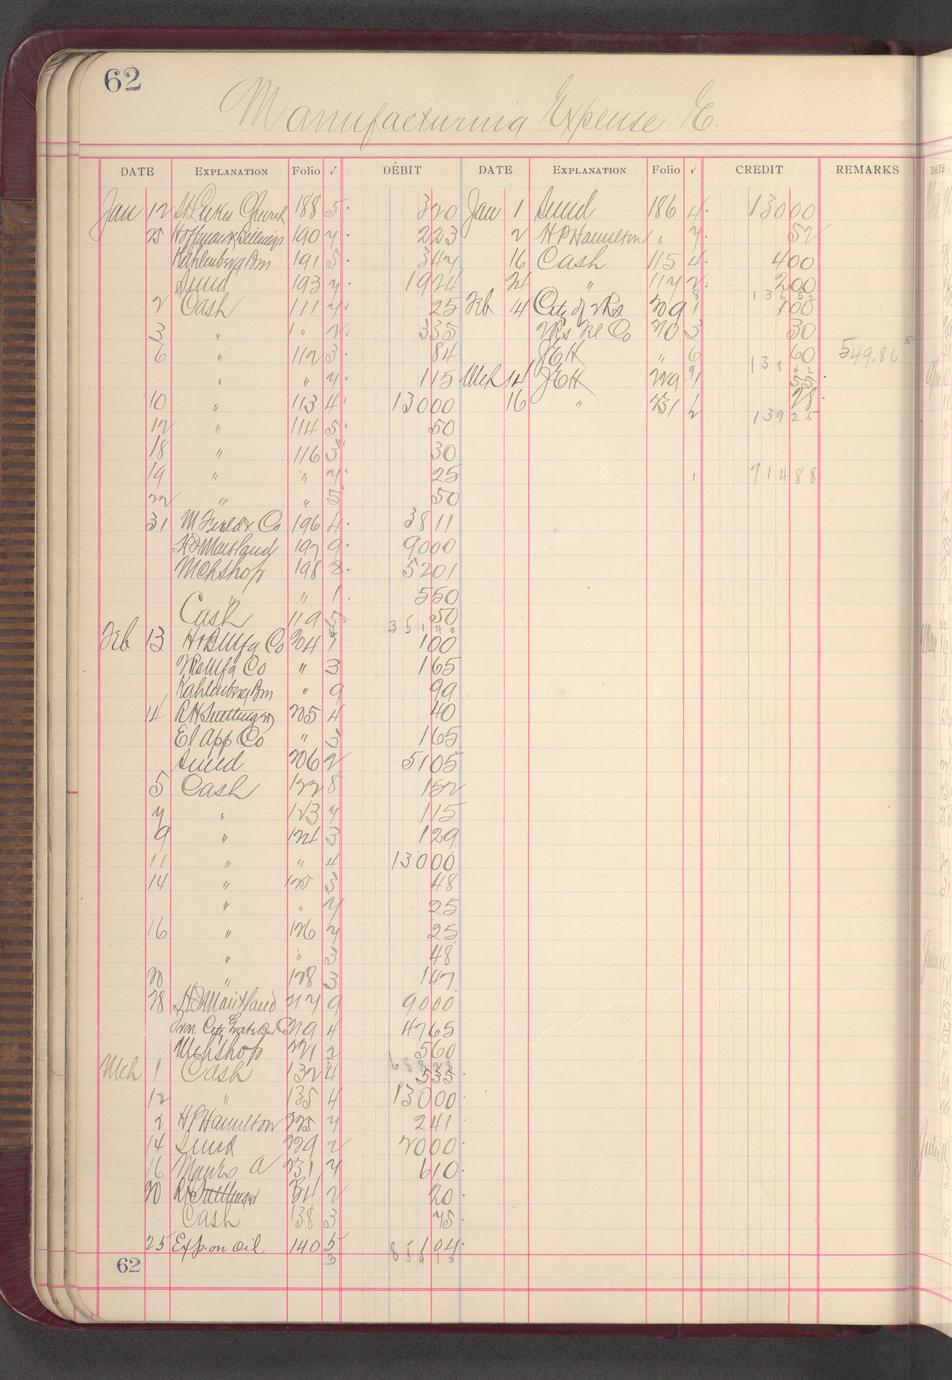 62
Manufacturing Expense E.
DATE EXPLANATION Folio ✓ DEBIT DATE EXPLANATION Folio ✓ CREDIT REMARKS
Jan 12 St Lukes Church 188 5 320 Jan 1 Sund 186 4 13000
25 Hoffman & Billings 190 7 223 2 H P Hamilton " 7 52
Kahlenberg Bm 191 5 342 16 Cash 115 4 400
Sund 193 7 1924 24 " 117 2 200
13652
2 Cash 111 7 25 Feb 4 City of 2Rs 209 1 100
3 " 1 " 2 335 2Rs Tel Co 210 3 30
6 " 112 3 84 JEH " 6 60 549.86
138 42
" " 7 115 Mch 14 JEH 229 9/1 55
10 " 113 4 13000 16 " 231 1/2 28
139 25
12 " 114 5 50
18 " 116 3 30
19 " " 7 25 71488
22 " " 5 50
31 M Field & Co 196 4 3811
H F Maitland 197 9 9000
Mchshop 198 8 5201
" " 1 550
Cash 119 5 50
Feb 13 H & B Mfg Co 204 1 100
2Rs Mfg Co " 3 165
Kahlenberg Bm " 9 99
14 R H 205 4 40
El App Co " 3 165
Sund 206 2 5105
5 Cash 122 8 152
7 " 123 7 115
9 " 124 3 129
11 " " 4 13000
14 " 125 3 48
" " 7 25
16 " 126 7 25
" " 3 48
20 " 128 3 147
28 H F Maitland 217 9 9000
219 4 4765
Mchshop 221 2 560
Mch 1 Cash 132 4 535
12 " 135 4 13000
2 H P Hamilton 225 7 241
14 Sund 229 2 2000
16 Manbs a 231 7 610
20 R H 234 2 20
Cash 138 3 75
25 Exp on Oil 140 5 104
3 85613
62